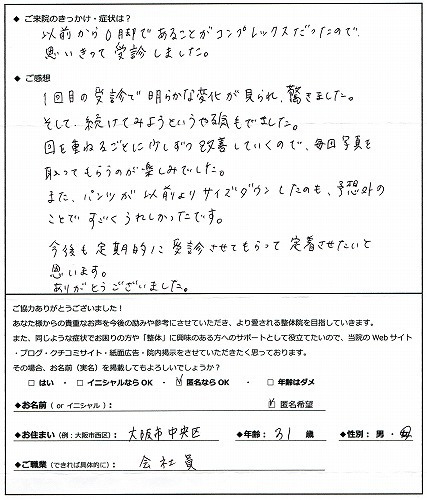 ◆ ご来院のきっかけ・症状は?
以前からO脚であることがコンプレックスだったので、
思いきって受診しました。
◆ ご感想
1回目の受診で明らかな変化が見られ、驚きました。
そして、続けてみようというやる気もでました。
回を重ねるごとに少しずつ改善していくので、毎回写真を
取ってもらうのが楽しみでした。
また、パンツが以前よりサイズダウンしたのも、予想外の
ことですごくうれしかったです。
今後も定期的に受診させてもらって定着させたいと
思います。
ありがとうございました。
ご協力ありがとうございました!
あなた様からの貴重なお声を今後の励みや参考にさせていただき、より愛される整体院を目指していきます。
また、同じような症状でお困りの方や「整体」に興味のある方へのサポートとして役立てたいので、当院のWebサイト
・ブログ・クチコミサイト・紙面広告・院内掲示をさせていただきたく思っております。
その場合、お名前(実名)を掲載してもよろしいでしょうか?
□ はい ・ □ イニシャルなら OK ・ ☑ 匿名なら OK ・ □ 年齢はダメ
◆お名前 ( or イニシャル ): ☑ 匿名希望
◆お住まい (例:大阪市西区): 大阪市中央区 ◆年齢: 31 歳 ◆性別: 男 ・ 女
◆ご職業 (できれば具体的に): 会社員